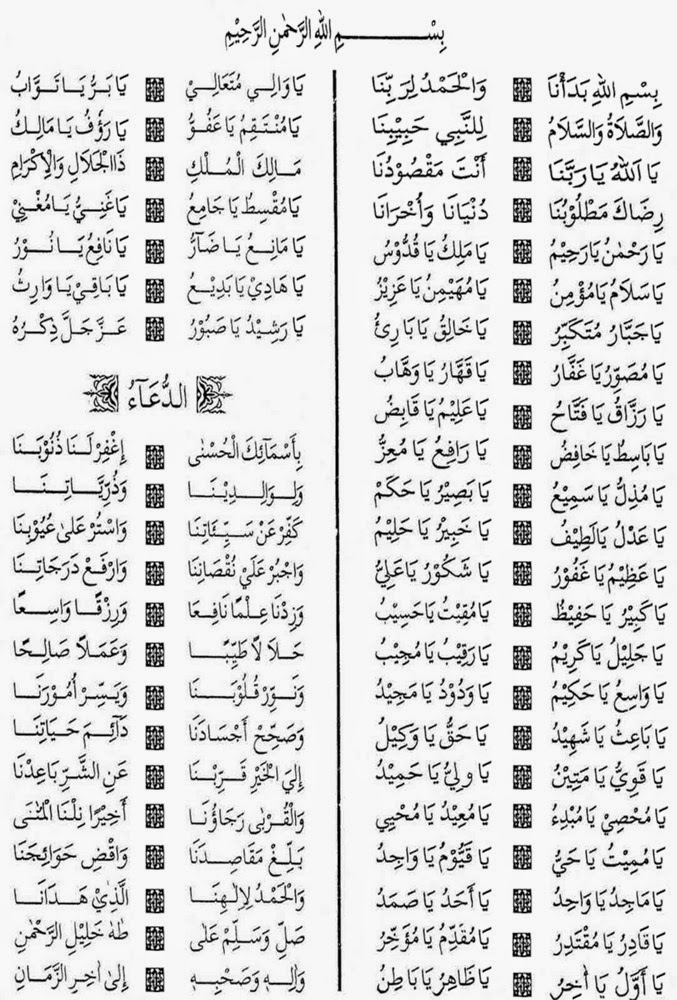 بِسْمِ اللهِ الرَّحْمٰنِ الرَّحِيْمِ
بِسْمِ اللهِ بَدَأْنَا وَالْحَمْدُ لِرَبِّنَا
وَالصَّلَاةُ وَالسَّلَامُ لِلنَّبِي حَبِيْبِنَا
يَا اَللهُ يَا رَبَّنَا أَنْتَ مَقْصُوْدُنَا
رِضَاكَ مَطْلُوْبُنَا دُنْيَانَا وَأُخْرَانَا
يَا رَحْمٰنُ يَارَحِيْمُ يَا مَلِكُ يَا قُدُّوْسُ
يَا سَلَامُ يَامُؤْمِنُ يَا مُهَيْمِنُ يَا عَزِيْزُ
يَا جَبَّارُ مُتَكَبِّرُ يَا خَالِقُ يَا بَارِئُ
يَا مُصَوِّرُ يَا غَفَّارُ يَا قَهَّارُ يَا وَهَّابُ
يَا رَزَّاقُ يَا فَتَّاحُ يَا عَلِيْمُ يَا قَابِضُ
يَا بَاسِطُ يَا خَافِضُ يَا رَافِعُ يَا مُعِزُّ
يَا مُذِلُّ يَا سَمِيْعُ يَا بَصِيْرُ يَا حَكَمْ
يَا عَدْلُ يَالَطِيْفُ يَا خَبِيْرُ يَا حَلِيْمُ
يَا عَظِيْمُ يَا غَفُوْرُ يَا شَكُوْرُ يَاعَلِيُّ
يَا كَبِيْرُ يَا حَفِيْظُ يَا مُقِيْتُ يَاحَسِيْبُ
يَا جَلِيْلُ يَاكَرِيْمُ يَا رَقِيْبُ يَا مُجِيْبُ
يَا وَاسِعُ يَا حَكِيْمُ يَا وَدُوْدُ يَا مَجِيْدُ
يَا بَاعِثُ يَا شَهِيْدُ يَا حَقُّ يَا وَكِيْلُ
يَا قَوِيُّ يَا مَتِيْنُ يَا وَلِيُّ يَا حَمِيْدُ
يَا مُحْصِيْ يَا مُبْدِءُ يَا مُعِيْدُ يَا مُحْيِي
يَا مُمِيْتُ يَا حَيُّ يَا قَيُّوْمُ يَا وَاجِدُ
يَا مَاجِدُ يَا وَاحِدُ يَا أَحَدُ يَا صَمَدُ
يَا قَادِرُ يَا مُقْتَدِرُ يَا مُقَدِّمُ يَا مُؤَخِّرُ
يَا أَوَّلُ يَا أٰخِرُ يَا ظَاهِرُ يَا بَاطِنُ
يَا وَالِي مُتَعَالِيْ يَا بَرُّ يَا تَوَّابُ
يَا مُنْتَقِمُ يَا عَفُوُّ يَا رَؤُفُ يَا مَالِكُ
مَالِكَ الْمُلْكِ ذَا الْجَلَالِ وَالْإِكْرَامِ
يَا مُقْسِطُ يَا جَامِعُ يَا غَنِيُّ يَا مُغْنِيْ
يَا مَانِعُ يَا ضَآرُّ يَا نَافِعُ يَا نُوْرُ
يَا هَادِيْ يَا بَدِيْعُ يَا بَاقِيْ يَا وَارِثُ
يَا رَشِيْدُ يَا صَبُوْرُ عَزَّ جَلَّ ذِكْرُهُ
الدُّعَآءُ
بِأَسْمَآئِكَ الْحُسْنٰى إِغْفِرْ لَنَا ذُنُوْبَنَا
وَلِوَالِدِيْنَا وَذُرِّيَّاتِنَا
كَفِّرْ عَنْ سَيِّئَاتِنَا وَاسْتُرْ عَلٰى عُيُوْبِنَا
وَاجْبُرْ عَلَيْ نُقْصَانِنَا وَارْفَعْ دَرَجَاتِنَا
وَزِدْنَا عِلْمًا نَافِعًا وَرِزْقًا وَاسِعًا
حَلَالًا طَيِّبًا وَعَمَلًا صَالِحًا
وَنَوِّرْ قُلُوْبَنَا وَيَسِّرْ أُمُوْرَنَا
وَصَحِّحْ أَجْسَادَنَا دَآئِمَ حَيَاتِنَا
إِلَي الْخَيْرِ قَرِّبْنَا عَنِ الشَّرِّ بَاعِدْنَا
وَالْقُرْبٰى رَجَاؤُنَا أَخِيْرًا نِلْنَا الْمُنٰى
بَلِّغْ مَقَاصِدَنَا وَاقْضِ حَوَائِجَنَا
وَالْحَمْدُ لِإِلٰهِنَا الَّذِيْ هَدَانَا
صَلِّ وَسَلِّمْ عَلٰى طٰهٰ خَلِيْلِ الرَّحْمٰنِ
وَاٰلِهِ وَصَحْبِهِ إِلٰى اٰخِرِ الزَّمَانِ